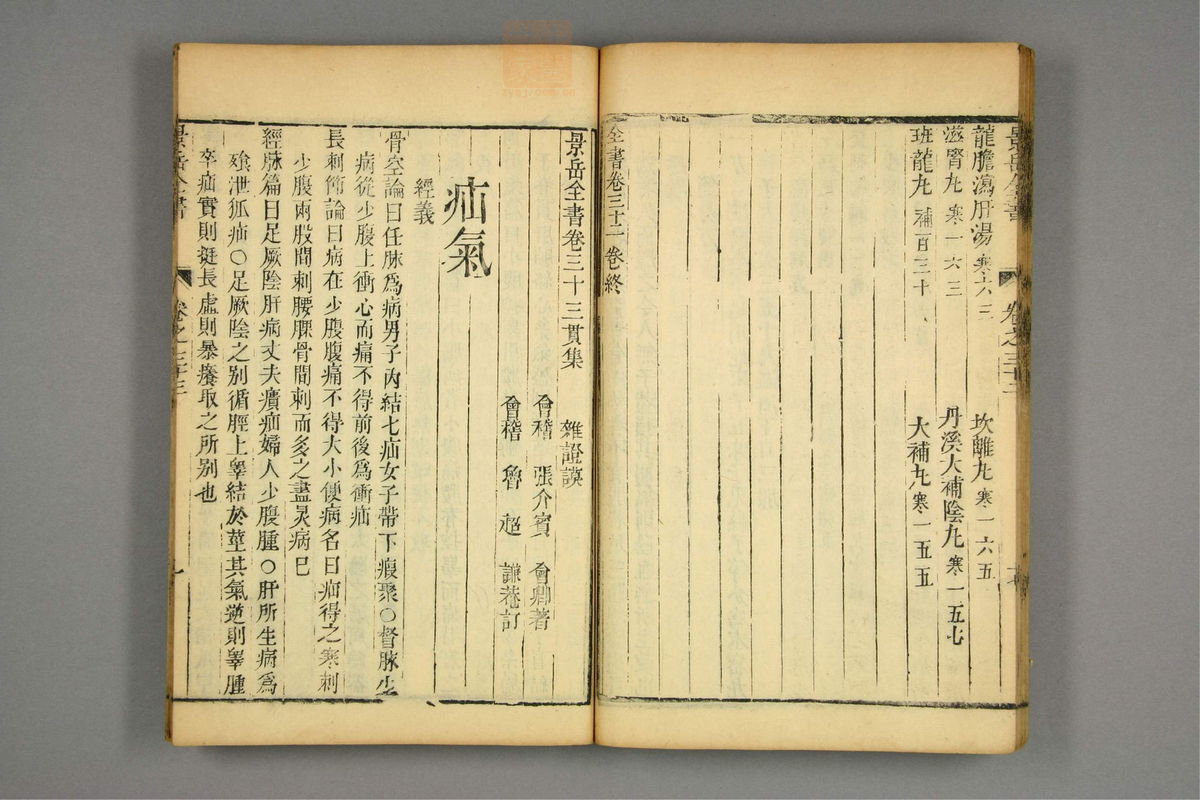 龍膽瀉肝湯 寒六三 坎離丸 寒一六五
滋腎丸 寒一六三 丹溪大補陰丸 寒一五七
班龍丸 補百三十 大補丸 寒一五五
全書卷三十二卷終
景岳全書 卷之三十二
景岳全書卷三十三貫集 雜證謨
會稽 張介賓 會卿著
會稽 魯超 謙菴訂
疝氣
經義
骨空論曰任脉爲病男子內結七疝女子帶下瘕聚○督脉生
病從少腹上衝心而痛不得前後爲衝疝
長刺節論曰病在少腹腹痛不得大小便病名曰疝得之寒刺
少腹兩股間刺腰髁骨間刺而多之盡炅病已
經脉篇曰足厥陰肝病丈夫㿉疝婦人少腹腫○肝所生病爲
飱泄狐疝○足厥陰之别循脛上睾結於莖其氣逆則睾腫
卒疝實則挺長虛則暴癢取之所别也
景岳全書 卷之三十三 一